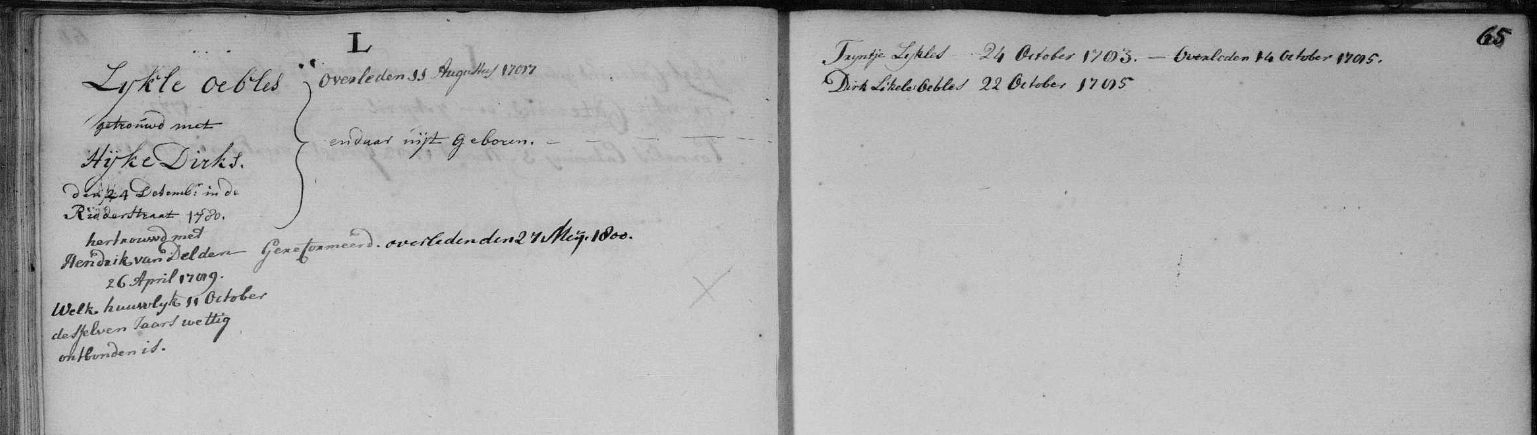 L
65
Lykle Oebles
overleden 11 Augustus 1787
getrouwd met
Hijke Dirks.
en daar uijt Geboren. —
den 24 Decemb: in de
Ridderstraat 1780.
hertrouwd met
Hendrik van Delden Gereformeerd. overleden den 27 Meij. 1800.
26 April 1789.
Welk huuwlyk 11 October
desselven Jaars wettig
ontbonden is.
Tryntje Lykles 24 October 1783. — Overleden 14 October 1785.
Dirk Likeles Oebles 22 October 1785